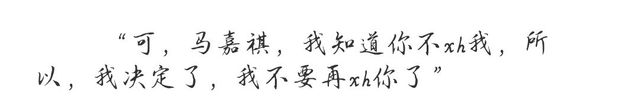 “可，马嘉祺，我知道你不xh我，所
以，我决定了，我不要再xh你了”